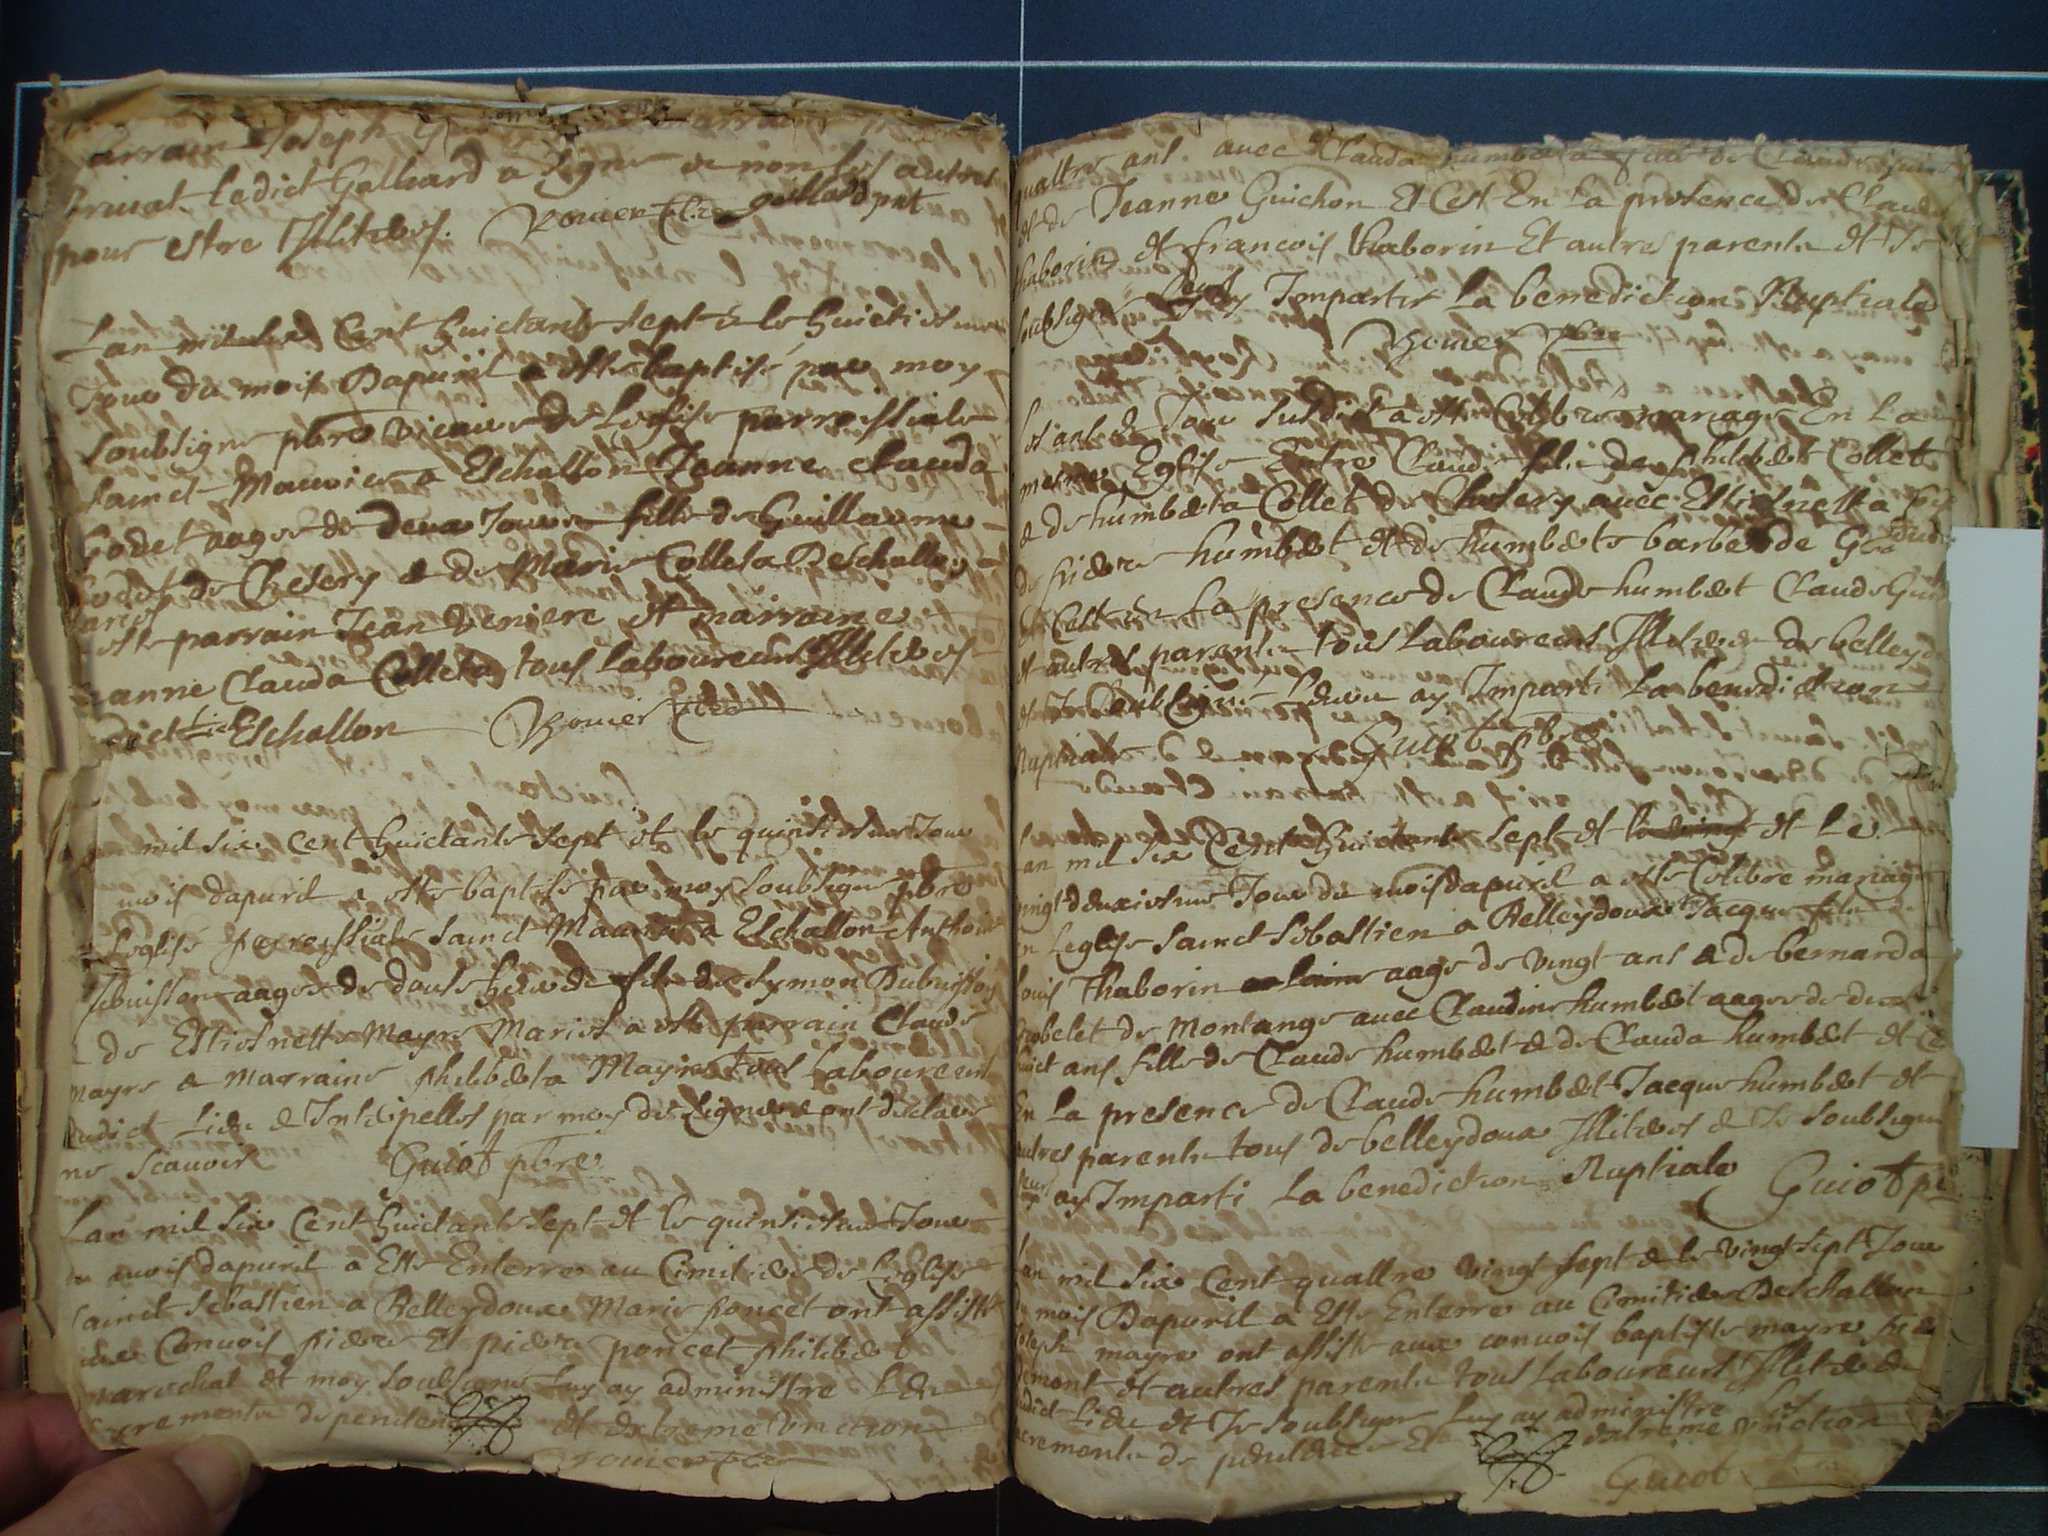 parrain Joseph
privat ledict Galliard a signe & non les autres
pour estre Illiteres. Rouier pbre galliard pnt
Lan mil six Cent huictante sept & le huictiesme
Jour du mois Dapuril a este baptise par moy
soubsigne pbre vicaire de Leglise parroissiale
sainct Maurice a Eschallon Jeanne Clauda
Godet aagee de deux Jours fille de Guillaume
Godet de Chesery & de Marie Colleta Deschallon
este parrain Jean veniere et marraine
Jeanne Clauda Colleta tous laboureurs Illiteres
dict lieu Eschallon Rouier pbre
mil six Cent huictante sept et le quinsiesme Jour
mois dapuril a este baptise par moy soubsigne pbre
Leglise parroissiale sainct Maurice a Eschallon Anthoine
Dubuisson aage de douse heure de fils de Symon Dubuisson
& de Estiesnette Mayre Maries a este parrain Claude
Mayre & marraine philiberta Mayre tous Laboureurs
dudict Lieu & Interpelles par moy de signer & ont desclare
ne scauoir Guiot pbre
Lan mil six Cent huictante sept et le quinsiesme Jour
du mois dapuril a Este Enterree au Cimitiere de Leglise
sainct sebastien a Belleydoux Marie poncet ont assiste
aux Conuois pierre Et pierre poncet philibert
mareschal et moy soubsigne luy ay administre Les
sacrements de penitence et extreme vnction
Rouier pbre
quattre ans. auec Clauda humberta fille de Claude
et de Jeanne Guichon Et Cest En la presence de Claude
Thaborin et francois Thaborin Et autres parents et Je
soubsigne Leurs ay Impartir La benediction Nuptiale
Rouier pbre
Les an & Jour susdict a este Celebre mariage En La
mesme Eglise Entre Claude fils de philibert Collet
& de humberta Collet de Chesery auec Estiesnetta
de pierre humbert et de humberte barbe de
Et Cest En La presence de Claude humbert Claude
et autres parents tous Laboureurs Illiteres de belleydoux
et Je soubsigne Leurs ay Imparti La benediction
Nuptiale Guiot pbre
Lan mil six Cent huictante sept et le vingt et Le
vingtdeuxiesme Jour du mois dapuril a este Celebre mariage
En Leglise sainct sebastien a Belleydoux Jacque fils
Louis Thaborin aage de vingt ans & de bernarda
Gobelet de Montange auec Claudine humbert aagee de dix
huict ans fille de Claude humbert & de Clauda humbert et Ce
En La presence de Claude humbert Jacque humbert et
autres parents tous de belleydoux Illiteres & Je soubsigne
Leurs ay Imparti La benediction Nuptiale Guiot pbre
Lan mil six Cent quattre vingt sept & le vingt sept Jour
du mois Dapuril a Este Enterre au Cimitiere Deschallon
Joseph mayre ont assiste aux conuois baptiste mayre
et autres parents tous Laboureurs Illiteres du
dict Lieu et Je soubsigne Luy ay administre Les
sacrements de penitence Et extreme vnction
Guiot